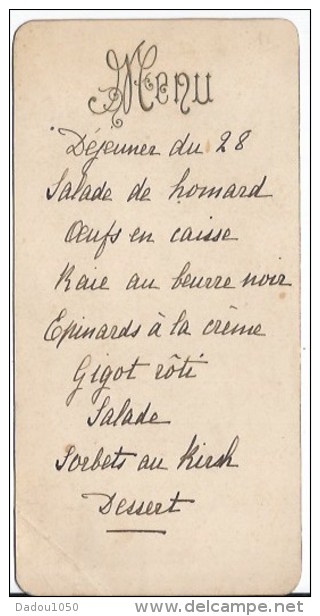 Menu
Déjeuner du 28
Salade de homard
Œufs en caisse
Raie au beurre noir
Epinards à la crème
Gigot rôti
Salade
Sorbets au Kirsh
Dessert
Dadou1050
delcampe.net